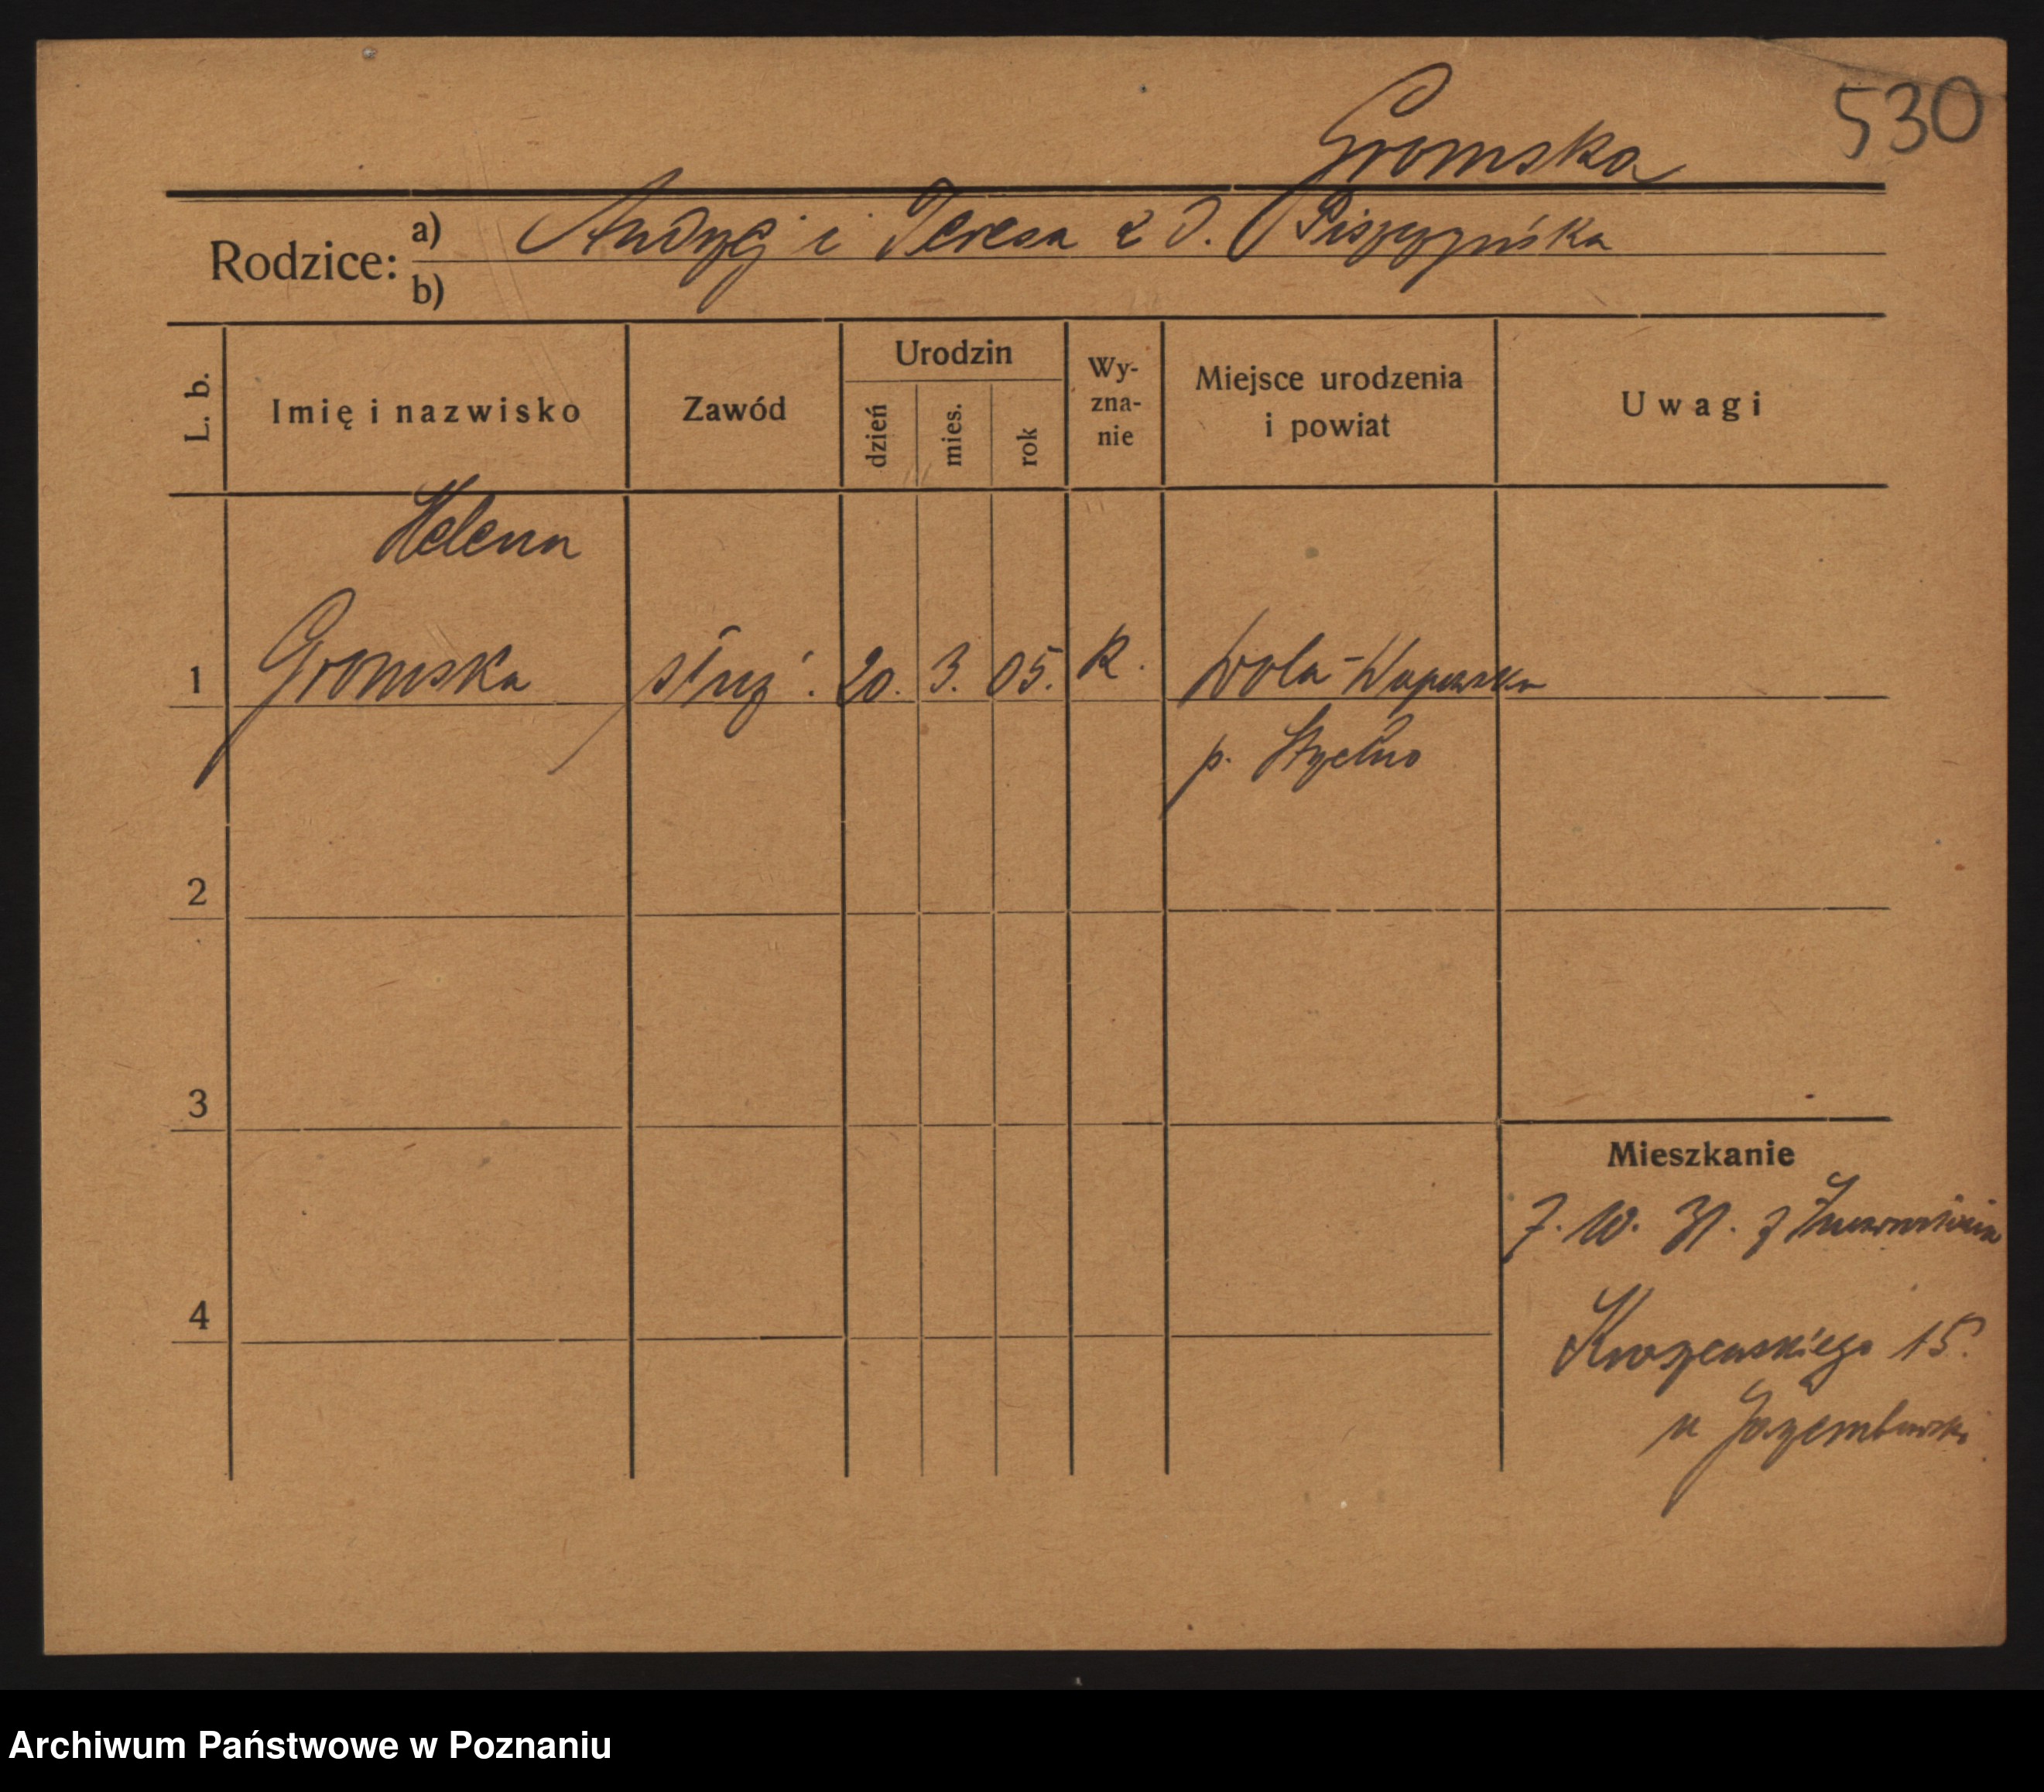 530
Gromska
Rodzice: a) Andrzej i Teresa z d. Piszczyńska
b)
L. b. Imię i nazwisko Zawód Urodzin dzień mies. rok Wy-zna-nie Miejsce urodzenia i powiat Uwagi
Helena
1 Gromska służ. 20. 3. 05. R. Wola-Wapowska
p. Strzelno
2
3
Mieszkanie
7. 10. 31. z Inowrocławia
4
Kraszewskiego 15.
u
Archiwum Państwowe w Poznaniu